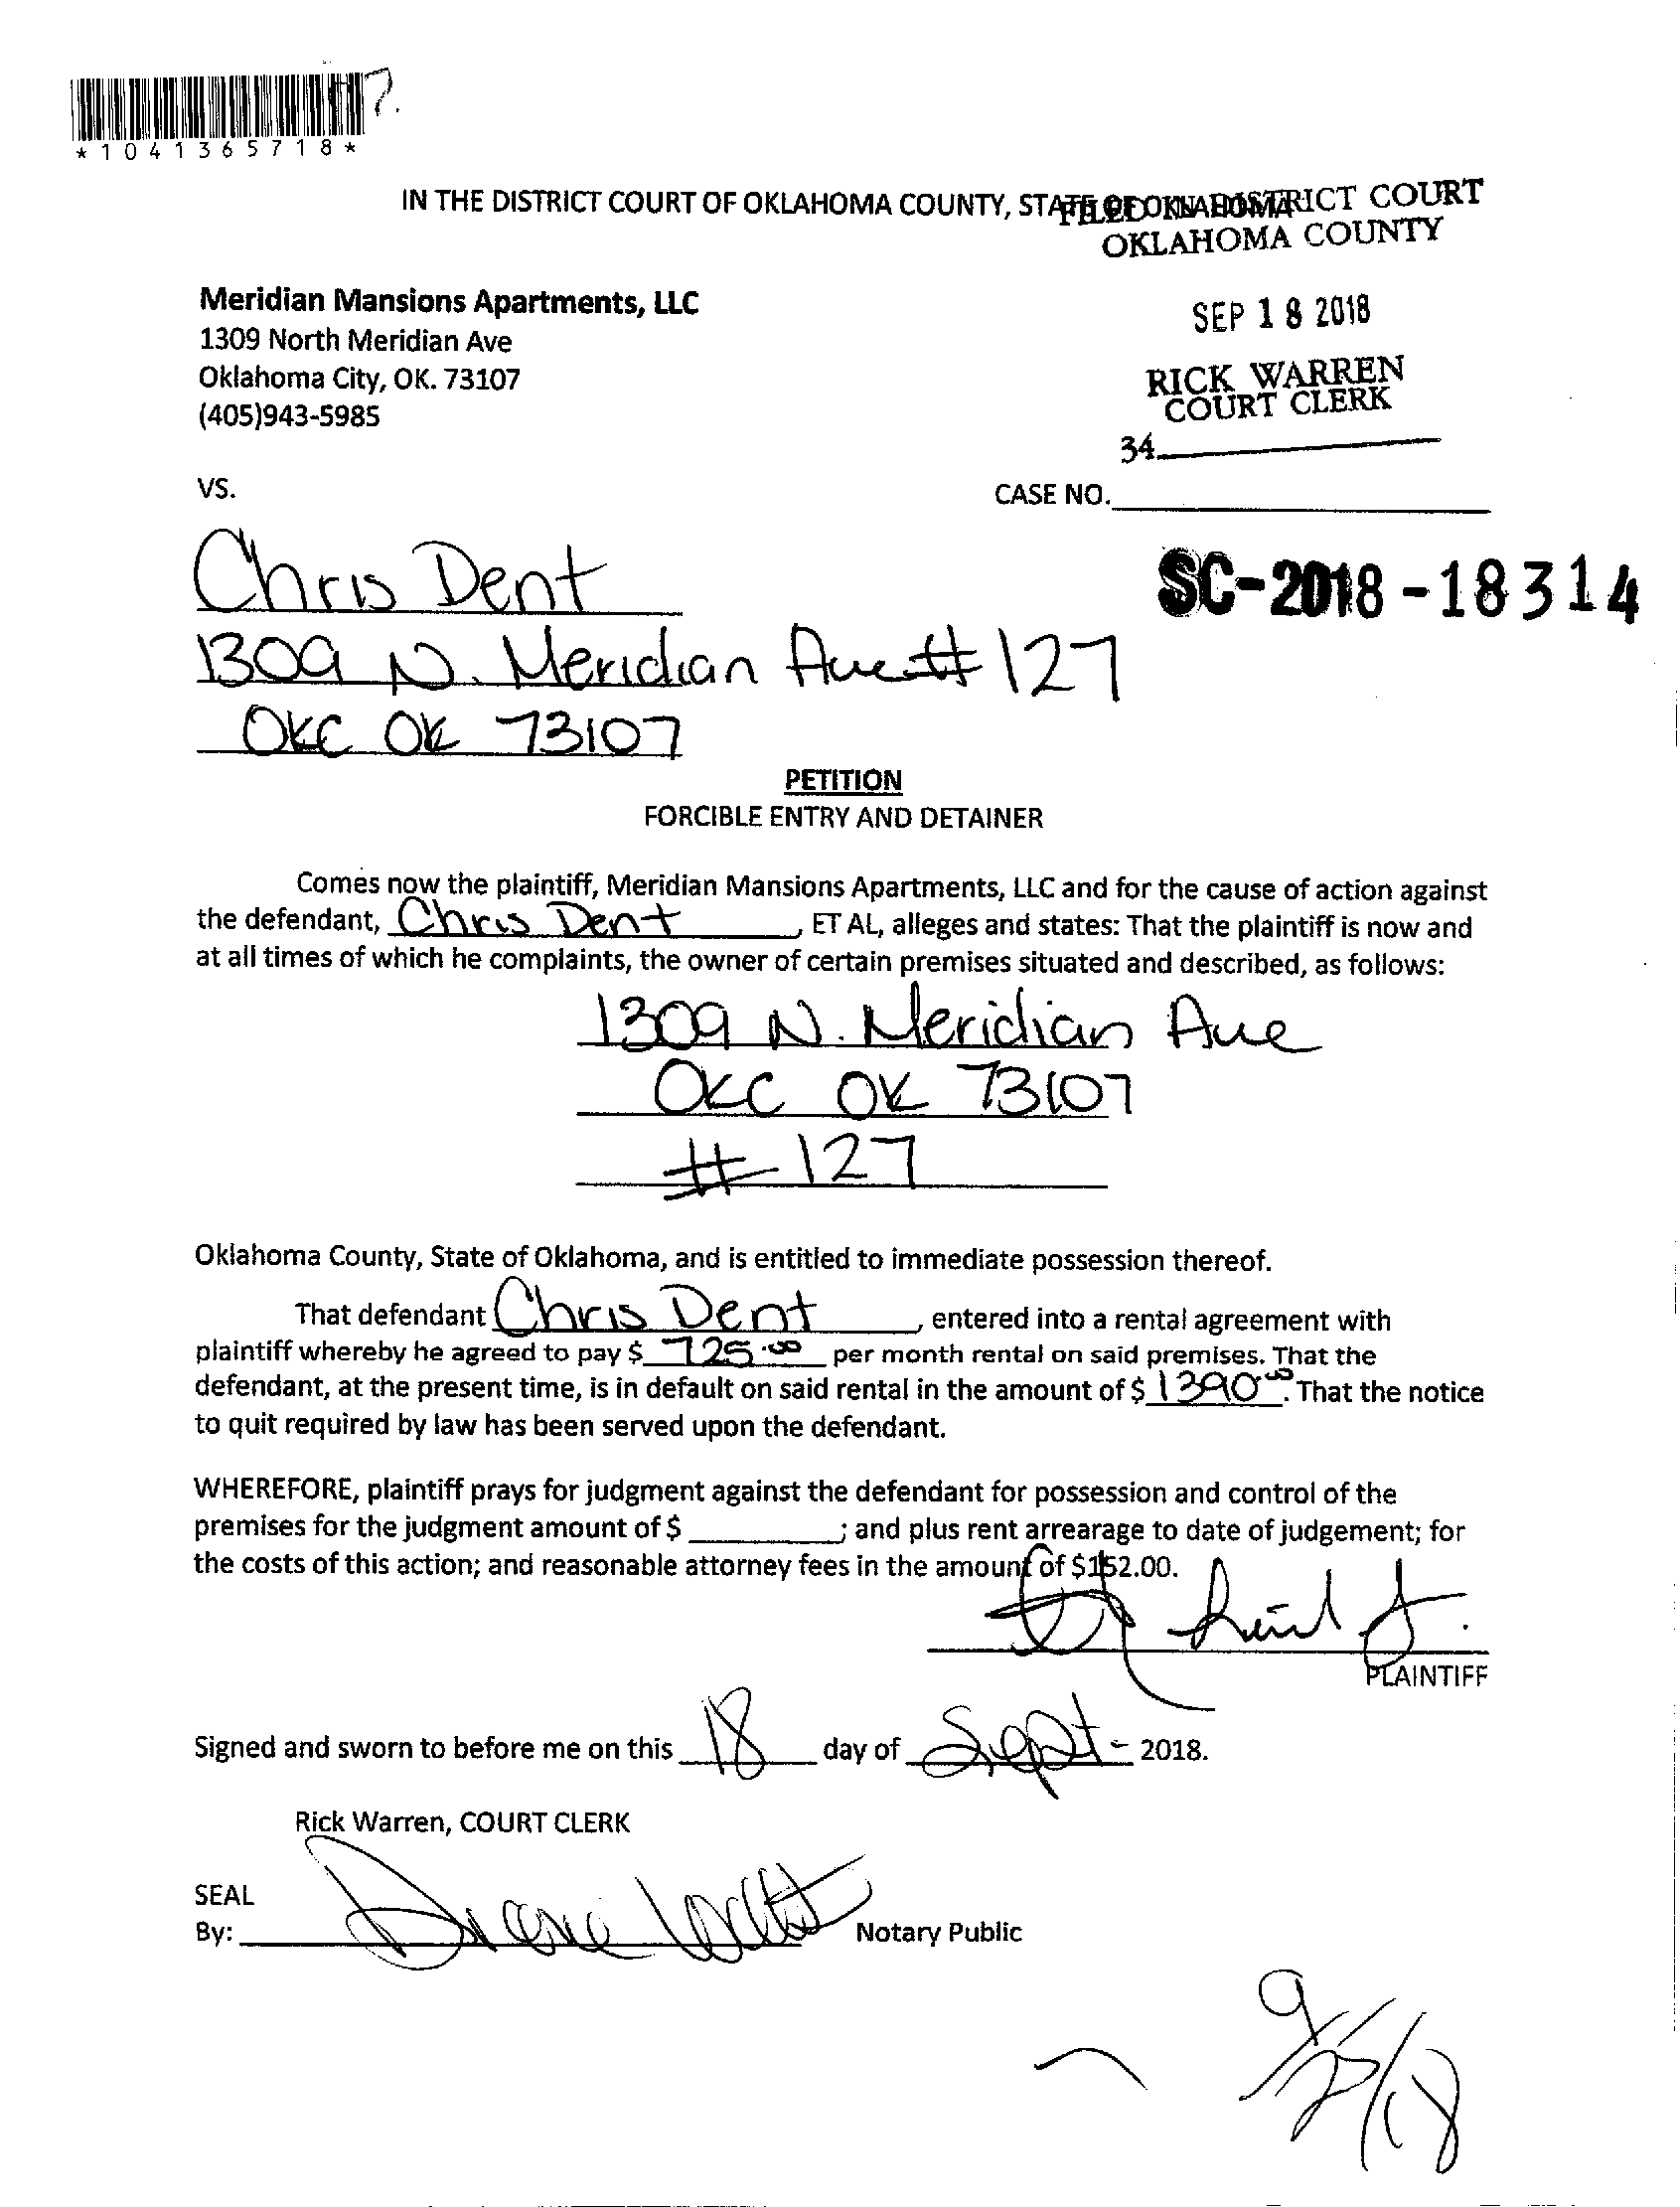 7.
*1041365718*
IN THE DISTRICT COURT OF OKLAHOMA COUNTY, STATE OF OKLAHOMA
FILED IN DISTRICT COURT
OKLAHOMA COUNTY
Meridian Mansions Apartments, LLC
1309 North Meridian Ave
Oklahoma City, OK. 73107
(405)943-5985
SEP 18 2018
RICK WARREN
COURT CLERK
34
VS.
CASE NO.
Chris Dent
SC-2018-18314
1309 N. Meridian Ave # 127
OKC OK 73107
PETITION
FORCIBLE ENTRY AND DETAINER
Comes now the plaintiff, Meridian Mansions Apartments, LLC and for the cause of action against
the defendant, Chris Dent, ET AL, alleges and states: That the plaintiff is now and
at all times of which he complaints, the owner of certain premises situated and described, as follows:
1309 N. Meridian Ave
OKC OK 73107
# 127
Oklahoma County, State of Oklahoma, and is entitled to immediate possession thereof.
That defendant Chris Dent, entered into a rental agreement with
plaintiff whereby he agreed to pay $ 725.00 per month rental on said premises. That the
defendant, at the present time, is in default on said rental in the amount of $ 1390.00. That the notice
to quit required by law has been served upon the defendant.
WHEREFORE, plaintiff prays for judgment against the defendant for possession and control of the
premises for the judgment amount of $ ; and plus rent arrearage to date of judgement; for
the costs of this action; and reasonable attorney fees in the amount of $152.00.
PLAINTIFF
Signed and sworn to before me on this 18 day of Sept - 2018.
Rick Warren, COURT CLERK
SEAL
By: Notary Public